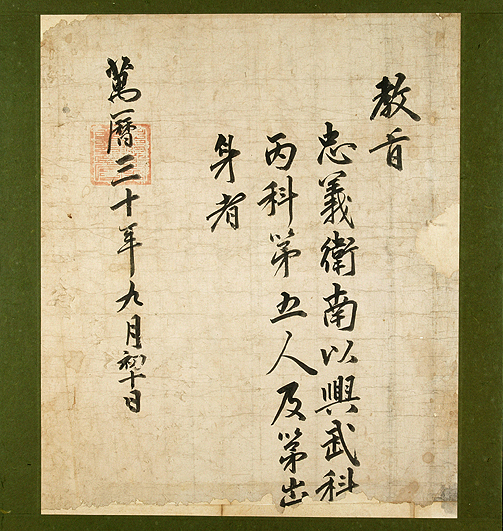 教旨
忠義衛南以興武科
丙科第五人及第出
身者
萬曆三十年九月初十日